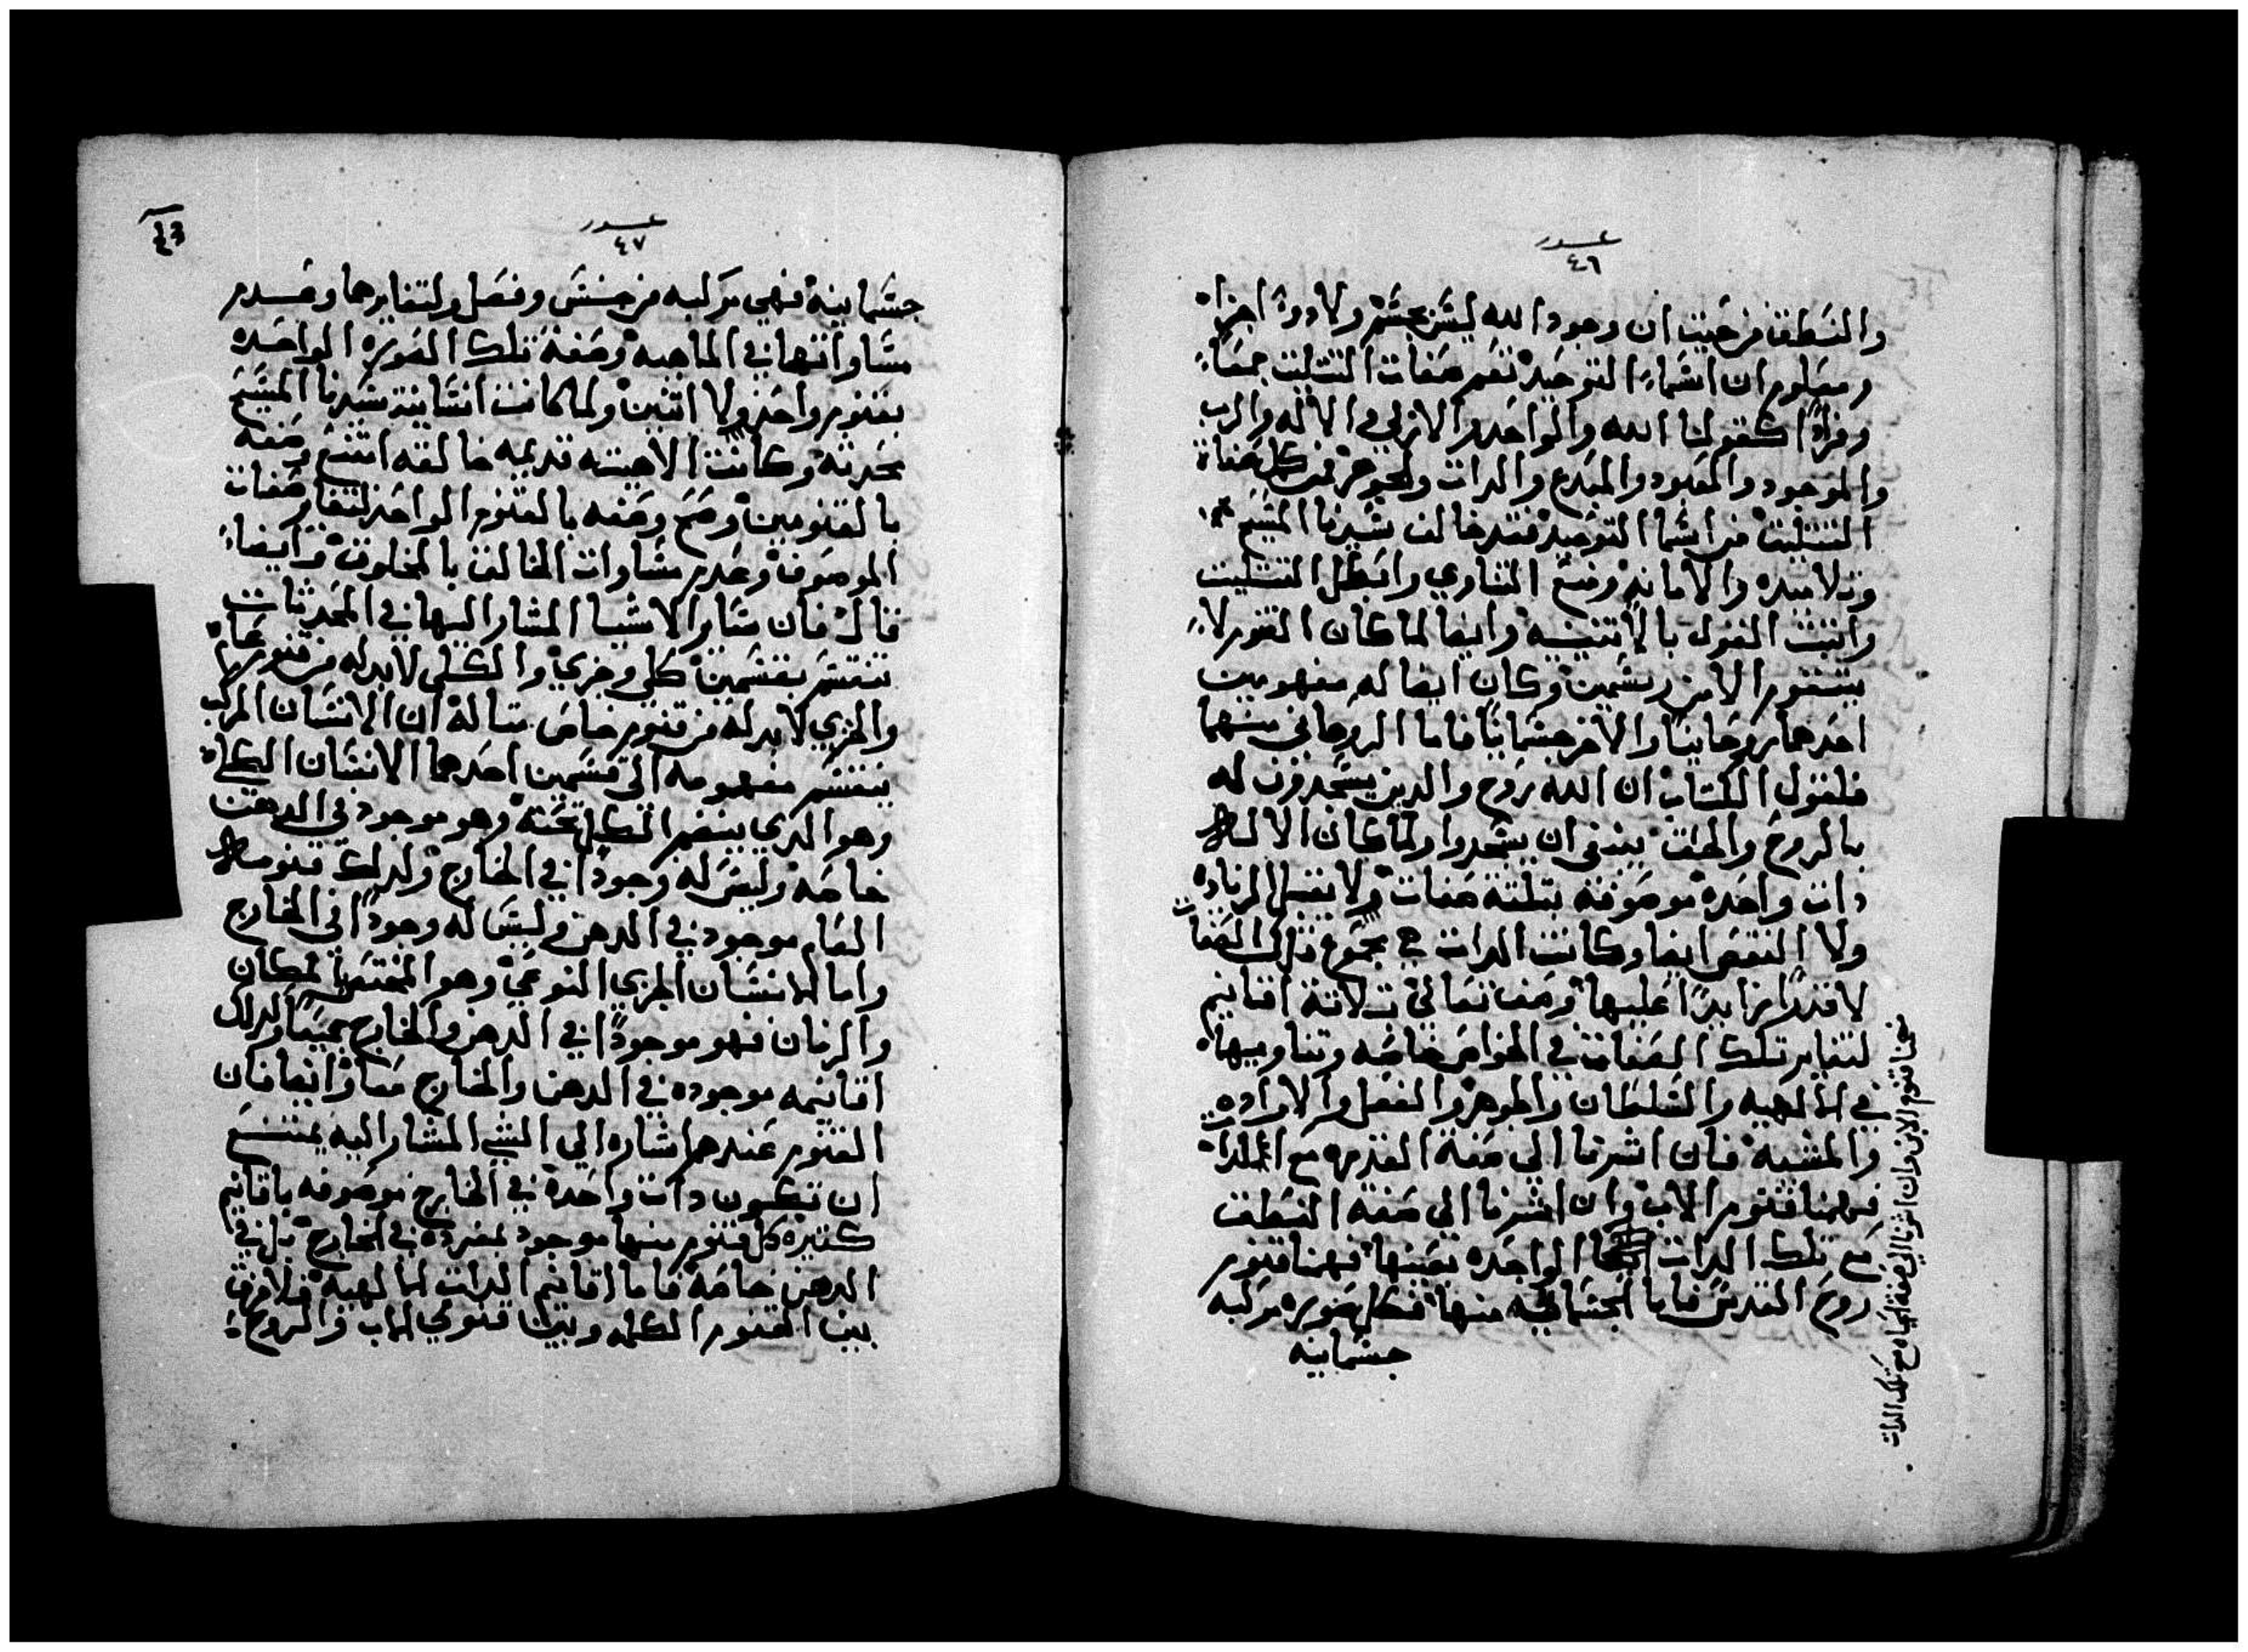 عدد
٤٦
والنطق من حيث ان وجود الله ليس بجسم ولا دوة اجزاء
ومعلوم ان اسماء التوحيد تعم صفات التثليث جمعاً
وفرداً كقولنا الله والواحد والازلي والاله والرب
والموجود والمعبود والمبدع والدات والجوهر فمن كل صفاة
التثليث من اسما التوحيد فقد خالف سيدنا المسيح
وتلاميده والامانه وضع التساوي وابطل التثليث
واتبت القول بالاتنينيه وايضا لما كان القنوم لا
يتقوم الا من رسمين وكان ايضا له مفهومين
احدهما روحانيا والاخر جسمانيا فاما الروحاني منهما
فلقول الكتاب ان الله روح والدين يسجدون له
بالروح والحق ينبغي ان يسجدوا ولما كان الاله
دات واحده موصوفه بتلتة صفات ولا تقبل الزياده
ولا النقص ايضا وكانت الدات هي مجموع تلك الصفات
لا قدرا زايدا عليها وصف تعالي تلاتة اقانيم
لتغاير تلك الصفات في الخواص خاصه وتساويها
في الالهيه والسلطان والجوهر والفعل والاراده
والمشيه فان اشرنا الي صفة القدره مع الدات
فهنا قنوم الاب وان اشرنا الي صفة النطق
مع تلك الدات الواحده بعينها فهنا قنوم
روح القدس فاما الجسمانيه منها فكل صوره مركبه
جسمانيه
فهنا قنوم الابن وان اشرنا الي صفة الحياه مع تلك الدات
عدد
٤٧
٤٣
جسمانيه فهي مركبه من جنس وفصل ولتغايرها وعدم
مساواتها في الماهيه وصفة تلك الصوره الواحده
بقنوم واحد ولا اتنين ولما كانت انسانية سيدنا المسيح
محدثه وكانت الاهيته قديمه خالقه امتنع وصفه
بالقنومين وصح وصفه بالقنوم الواحد لتغاير صفات
الموصوف وعدم مساوات الخالق بالمخلوق وايضاً
قال فان ساير الاشيا المشار اليها في المحدثات
تنقسم بقسمين كلي وجزي والكلي لا بد له من قنوم عام
والجزي لا بد له من قنوم خاص متاله ان الانسان المركب
ينقسم مفهومه الي قسمين احدهما الانسان الكلي
وهو الدي ينضم الكل تحته وهو موجود في الدهن
خاصه وليس له وجوداً في الخارج ولدلك قنومه
العام موجود في الدهن وليس له وجوداً في الخارج
واما الانسان الجزي النوعي وهو المختص بالمكان
والزمان فهو موجوداً في الدهن والخارج جميعاً ولدلك
اقانيمه موجوده في الدهن والخارج معا وايضا فان
القنوم عندهم اشاره الي الشي المشار اليه يمتنع
ان تكون دات واحده في الخارج موصوفه باقانيم
كتيره كل قنوم منها موجود بمفرده في الخارج بل في
الدهن خاصه فاما اقانيم الدات الالهيه فلا فرق
بين القنوم الكلمه وبين قنومي الاب والروح